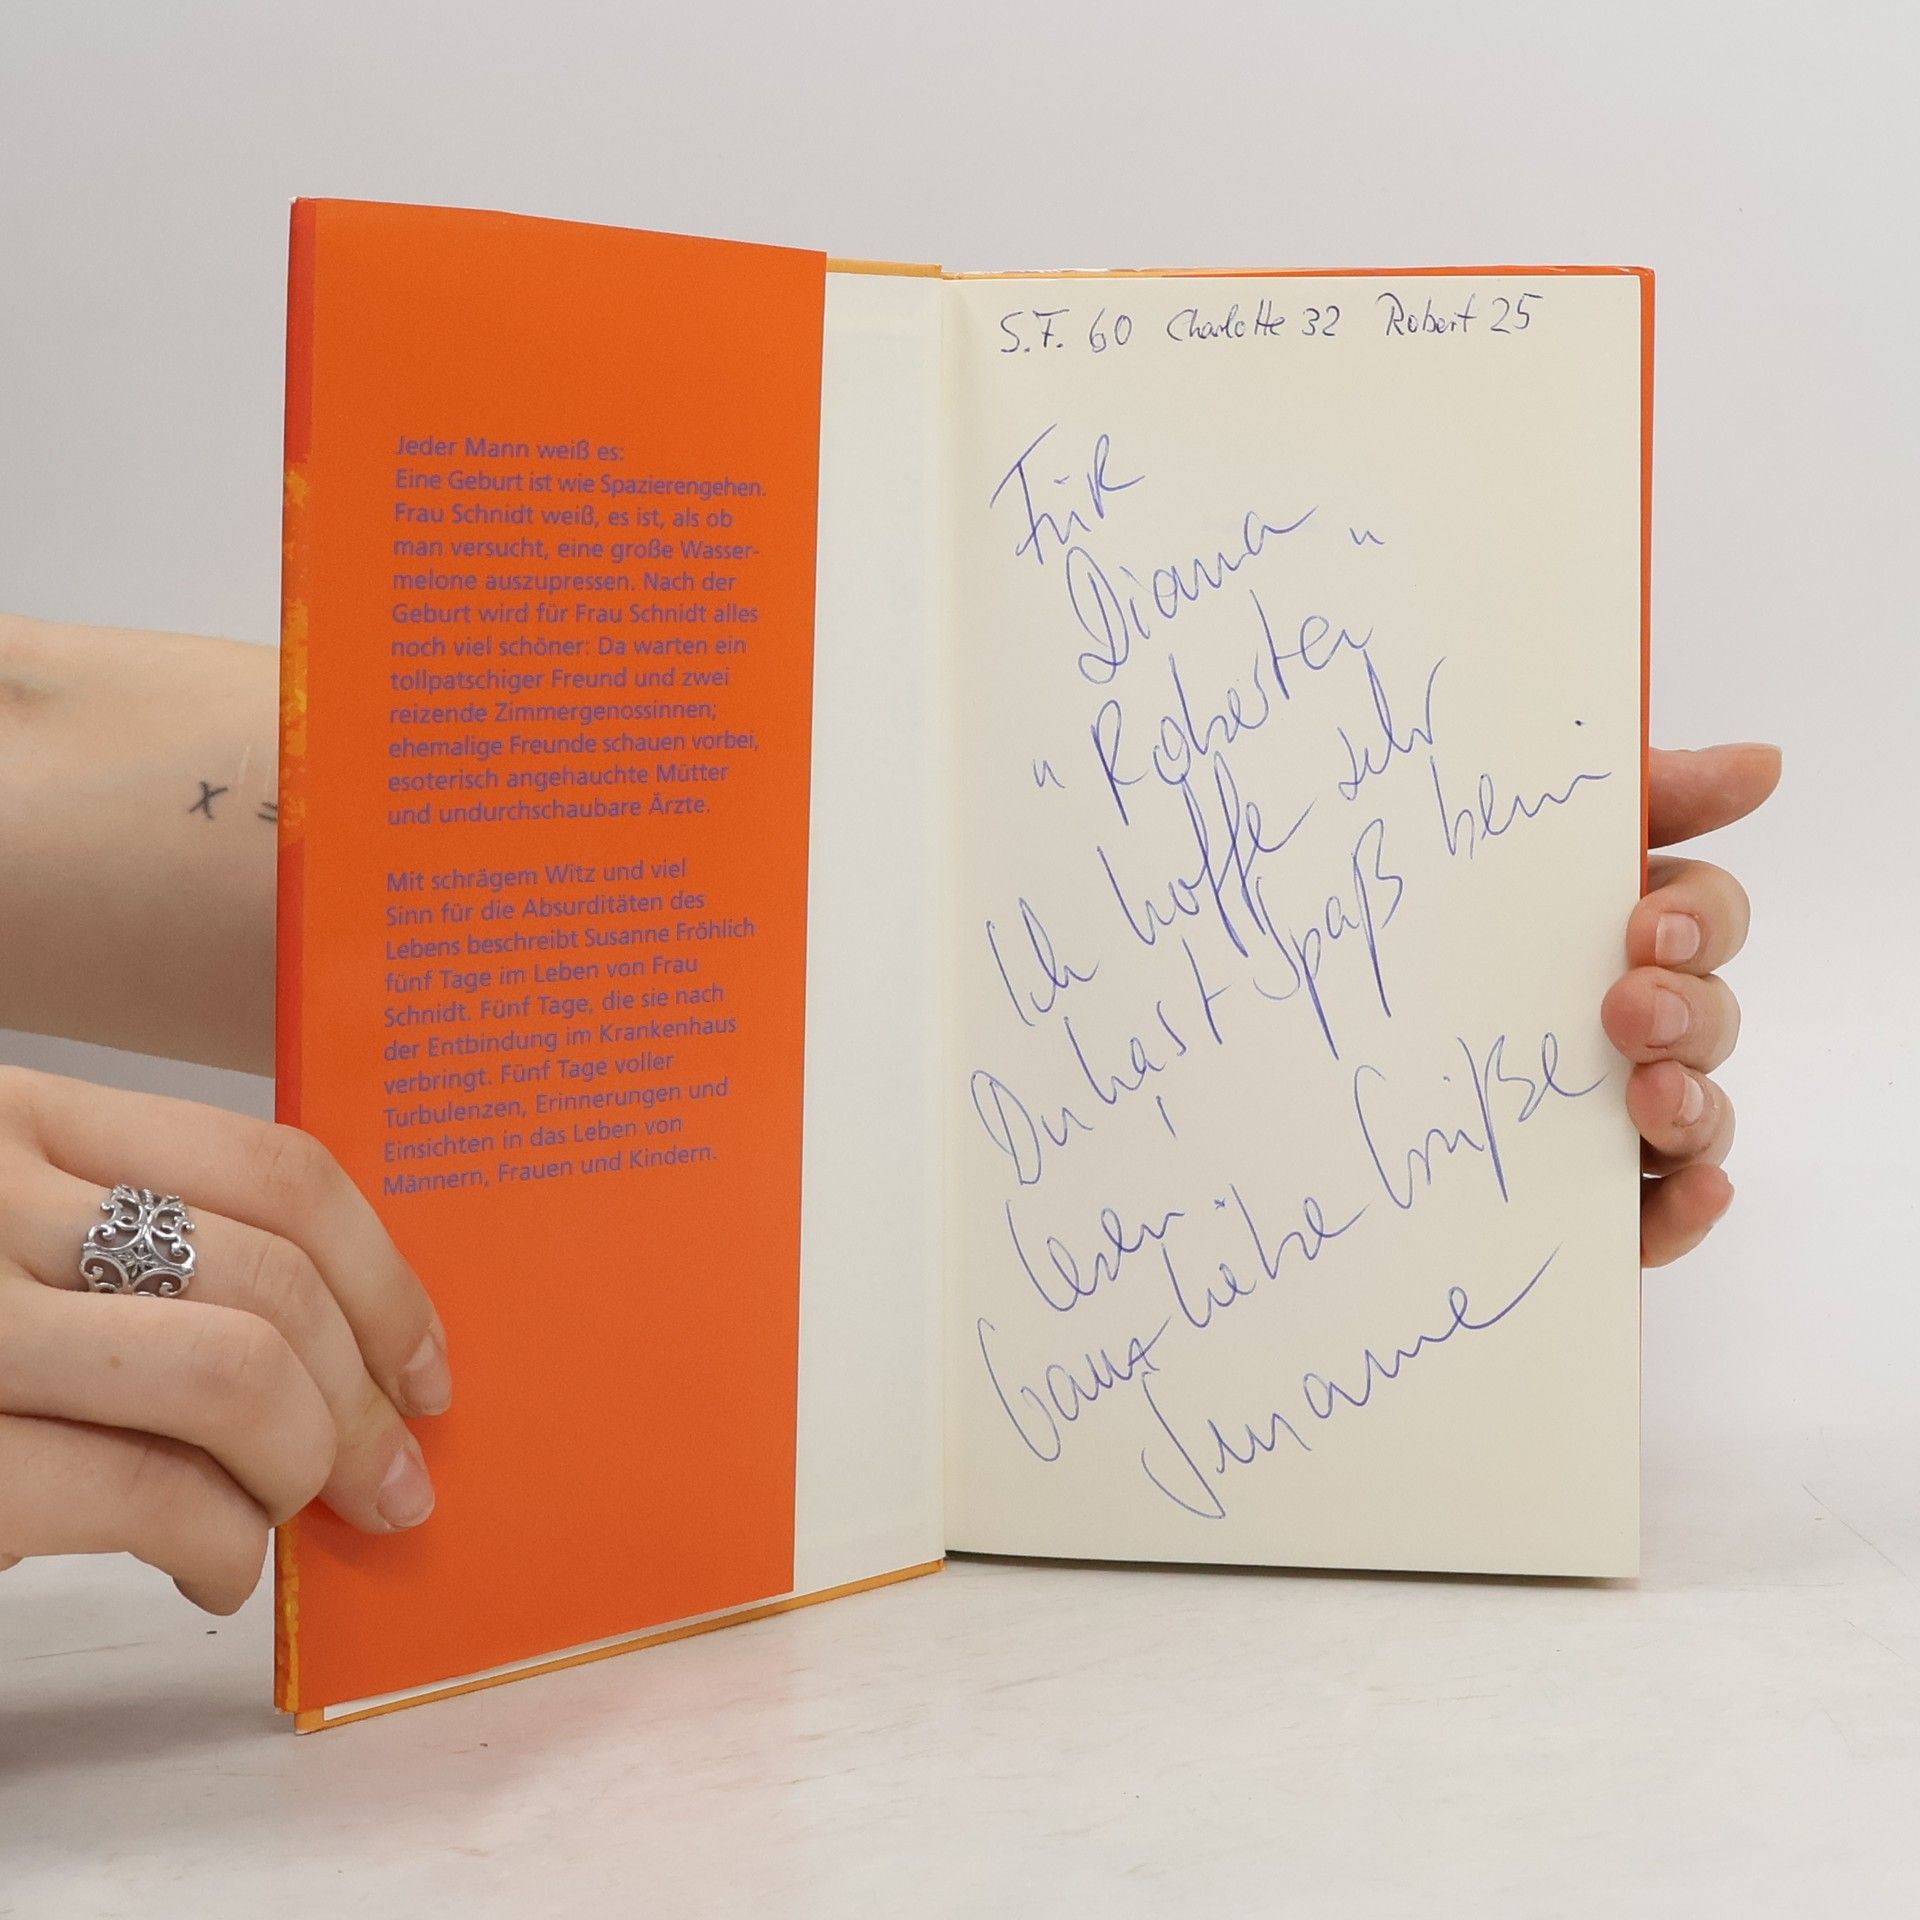 Jeder Mann weiß es:
Eine Geburt ist wie Spazierengehen.
Frau Schnidt weiß, es ist, als ob
man versucht, eine große Wasser-
melone auszupressen. Nach der
Geburt wird für Frau Schnidt alles
noch viel schöner: Da warten ein
tollpatschiger Freund und zwei
reizende Zimmergenossinnen;
ehemalige Freunde schauen vorbei,
esoterisch angehauchte Mütter
und undurchschaubare Ärzte.
Mit schrägem Witz und viel
Sinn für die Absurditäten des
Lebens beschreibt Susanne Fröhlich
fünf Tage im Leben von Frau
Schnidt. Fünf Tage, die sie nach
der Entbindung im Krankenhaus
verbringt. Fünf Tage voller
Turbulenzen, Erinnerungen und
Einsichten in das Leben von
Männern, Frauen und Kindern.
S.F. 60 Charlotte 32 Robert 25
Für
Diana
"Roberta"
Ich hoffe sehr
Du hast Spaß beim
Lesen!
Ganz liebe Grüße
Susanne
x =